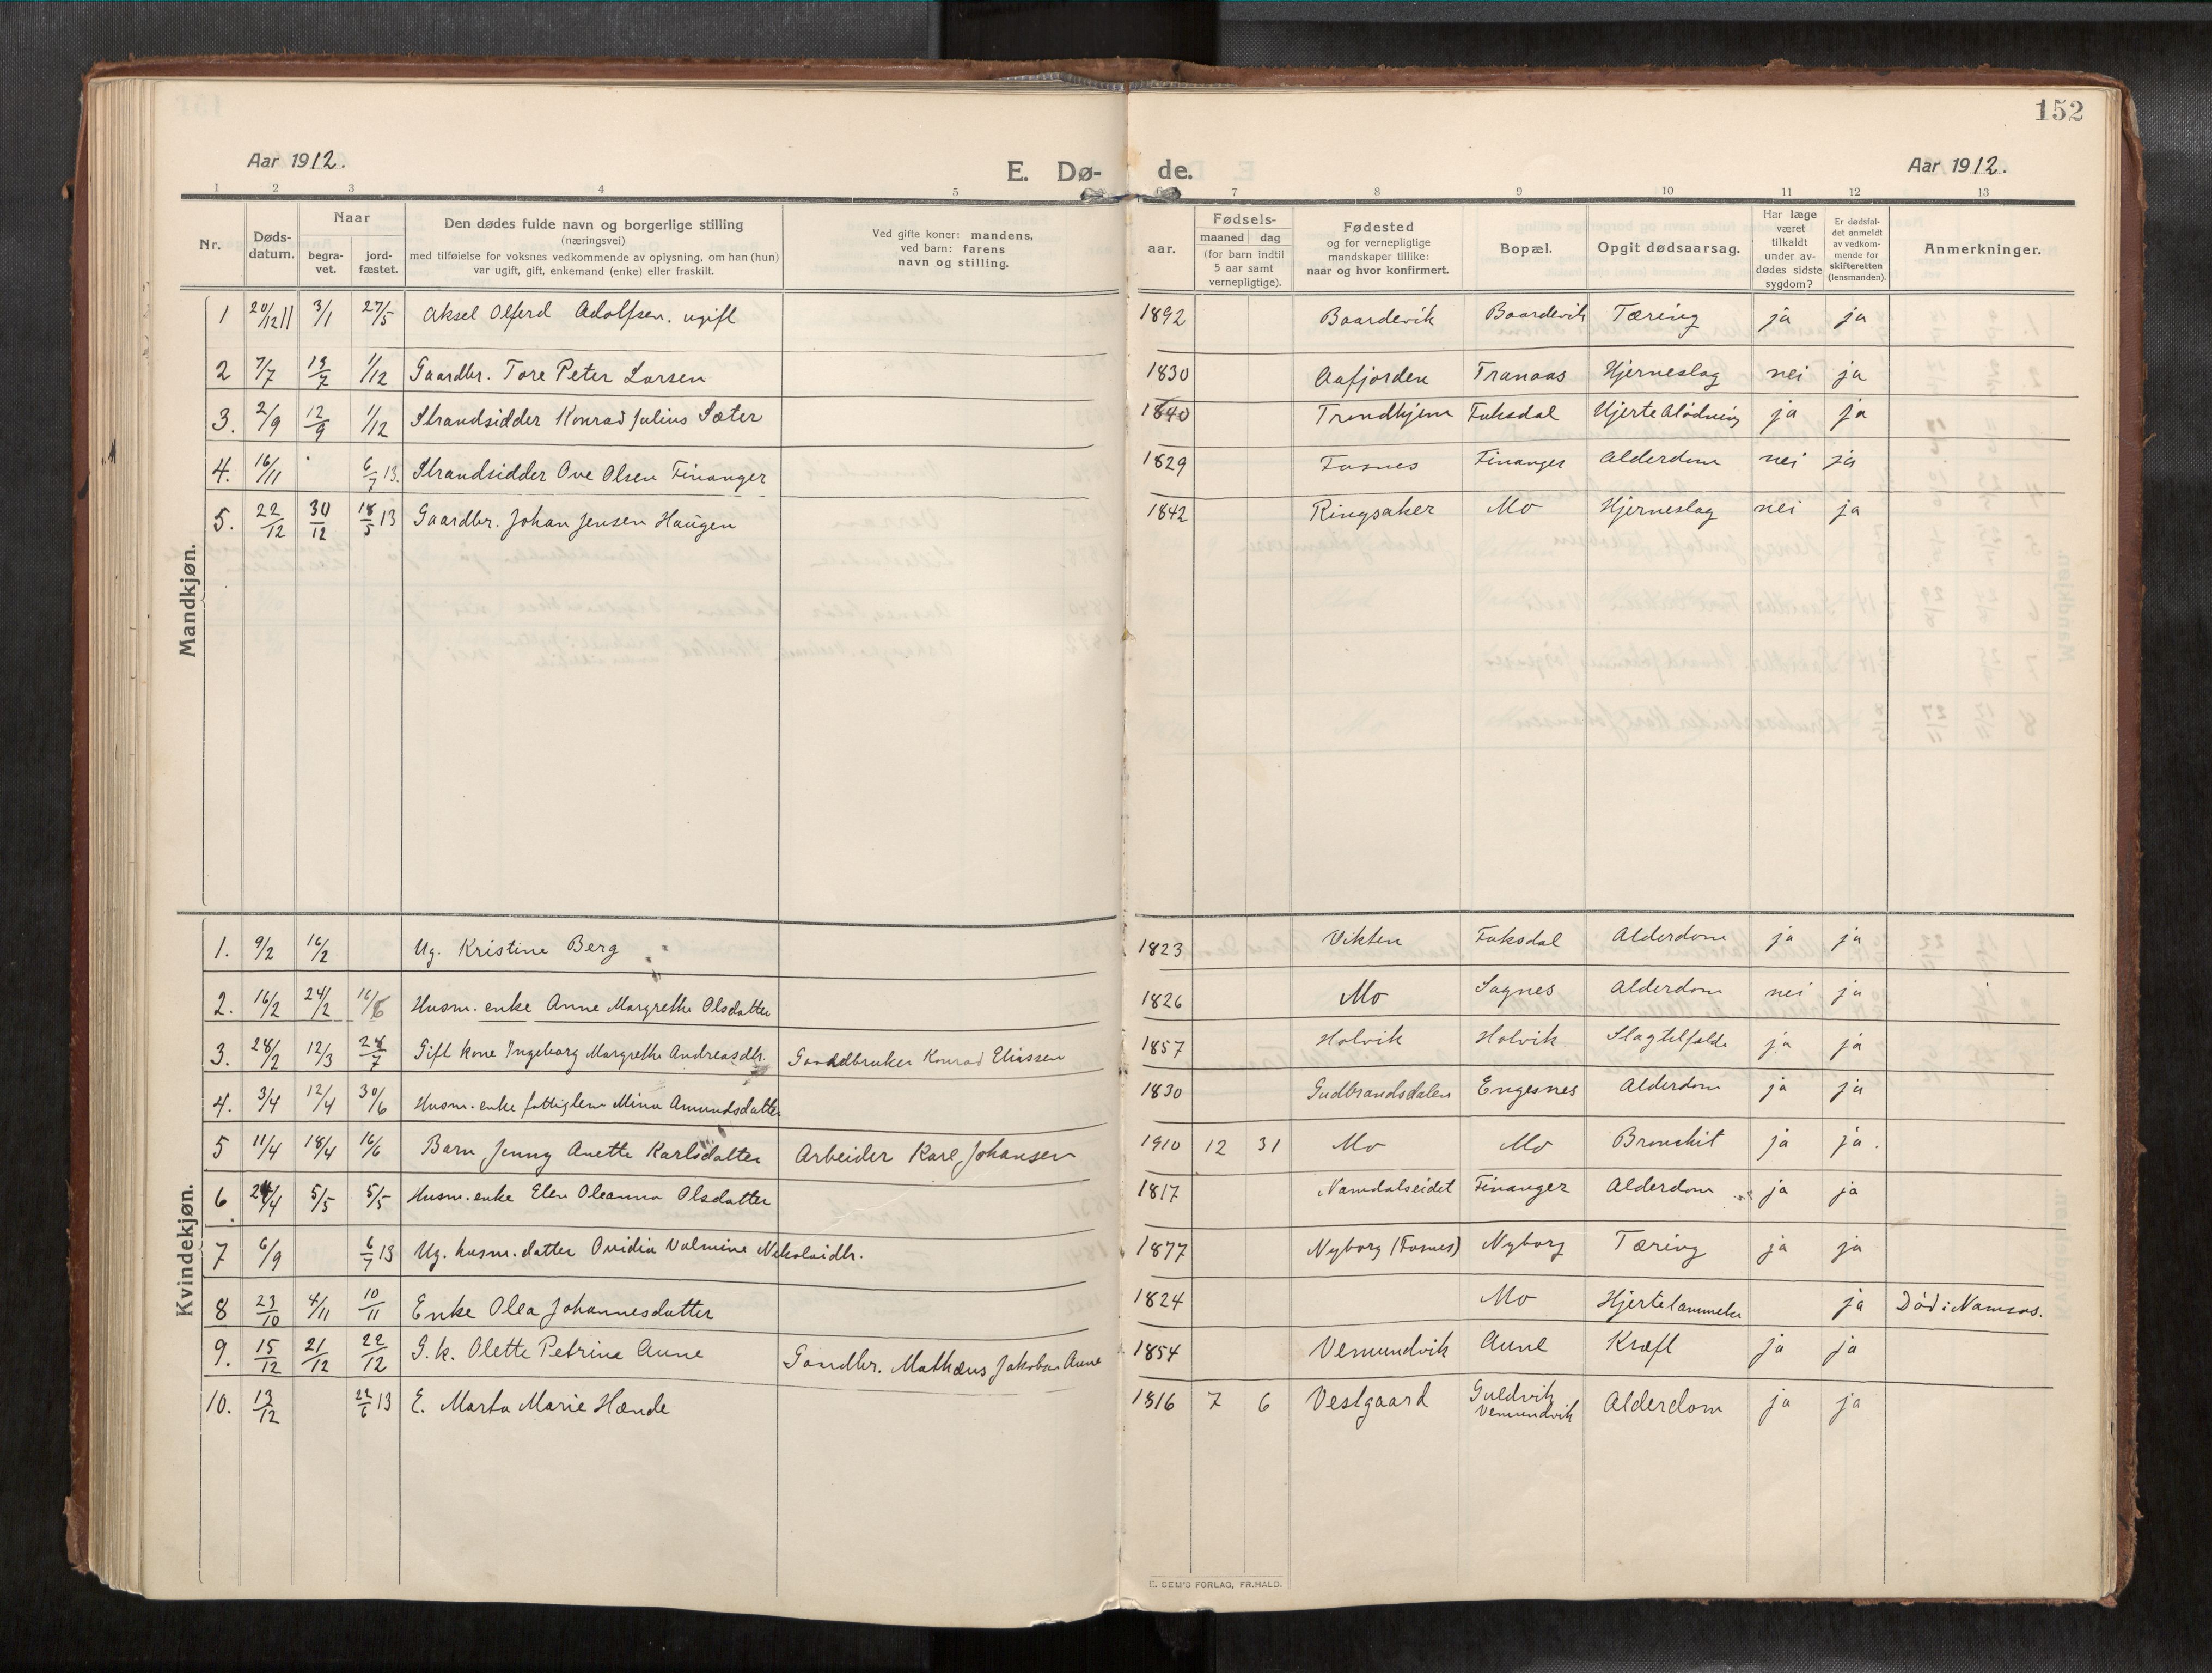 152
Aar 1912.
E. Dø-
de.
Aar 1912.
1 2 3 4 5 6 7 8 9 10 11 12 13
Nr.
Døds-
datum.
Naar
begra-
vet.
jord-
fæstet.
Den dødes fulde navn og borgerlige stilling
(næringsvei)
med tilføielse for voksnes vedkommende av oplysning, om han (hun)
var ugift, gift, enkemand (enke) eller fraskilt.
Ved gifte koner: mandens,
ved barn: farens
navn og stilling.
aar.
Fødsels-
maaned dag
(for barn indtil
5 aar samt
vernepligtige).
Fødested
og for vernepligtige
mandskaper tillike:
naar og hvor konfirmert.
Bopæl.
Opgit dødsaarsag.
Har læge
været
tilkaldt
under av-
dødes sidste
sygdom?
Er dødsfal-
det anmeldt
av vedkom-
mende for
skifteretten
(lensmanden).
Anmerkninger.
Mandkjøn.
1 20/12 11 3/1 27/5 Aksel Olferd Adolfsen. ugift 1892 Baardevik Baardevik Tæring ja ja
2 7/7 13/7 1/12 Gaardbr. Tore Peter Larsen 1830 Aafjorden Tranaas Hjerneslag nei ja
3. 2/9 12/9 1/12 Strandsidder Konrad Julius Sæter 1840 Trondhjem Fuksdal Hjerteblødning ja ja
4. 16/11 6/7 13. Strandsidder Ove Olsen Finanger 1829 Fosnes Finanger Alderdom nei ja
5. 22/12 30/12 18/5 13 Gaardbr. Johan Jensen Haugen 1842 Ringsaker Mo Hjerneslag nei ja
Kvindekjøn.
1. 9/2 16/2 Ug. Kristine Berg 1823 Vikten Fuksdal Alderdom ja ja
2. 16/2 24/2 16/6 Husm. enke Anne Margrethe Olsdatter 1826 Mo Sagnes Alderdom nei ja
3. 28/2 12/3 28/7 Gift kone Ingeborg Margrethe Andreasdtr. Gaardbruker Konrad Eliassen 1857 Holvik Holvik Slagtilfælde ja ja
4. 3/4 12/4 30/6 Husm. enke fattiglem Mina Amundsdatter 1830 Gudbrandsdalen Engesnes Alderdom ja ja
5 11/4 18/4 16/6 Barn Jenny Anette Karlsdatter Arbeider Karl Johansen 1910 12 31 Mo Mo Bronchit ja ja.
6. 24/4 5/5 5/5 Husm. enke Elen Oleanna Olsdatter 1817 Namdalseidet Finanger Alderdom ja ja
7 6/9 6/7 13 Ug. husm. datter Ovidia Valmine Nikolaidtr. 1877 Nyborg (Fosnes) Nyborg Tæring ja ja
8 23/10 4/11 10/11 Enke Olea Johannesdatter 1824 Mo Hjertelammelse ja Død i Namsos.
9. 15/12 21/12 22/12 G. k. Olette Petrine Aune Gaardbr. Mathæus Jakobsen Aune 1854 Vemundvik Aune Kræft ja ja
10. 13/12 22/6 13 E. Marta Marie Hænde 1816 7 6 Vestgaard Guldvik Vemundvik Alderdom ja ja
E. SEM'S FORLAG, FR.HALD.